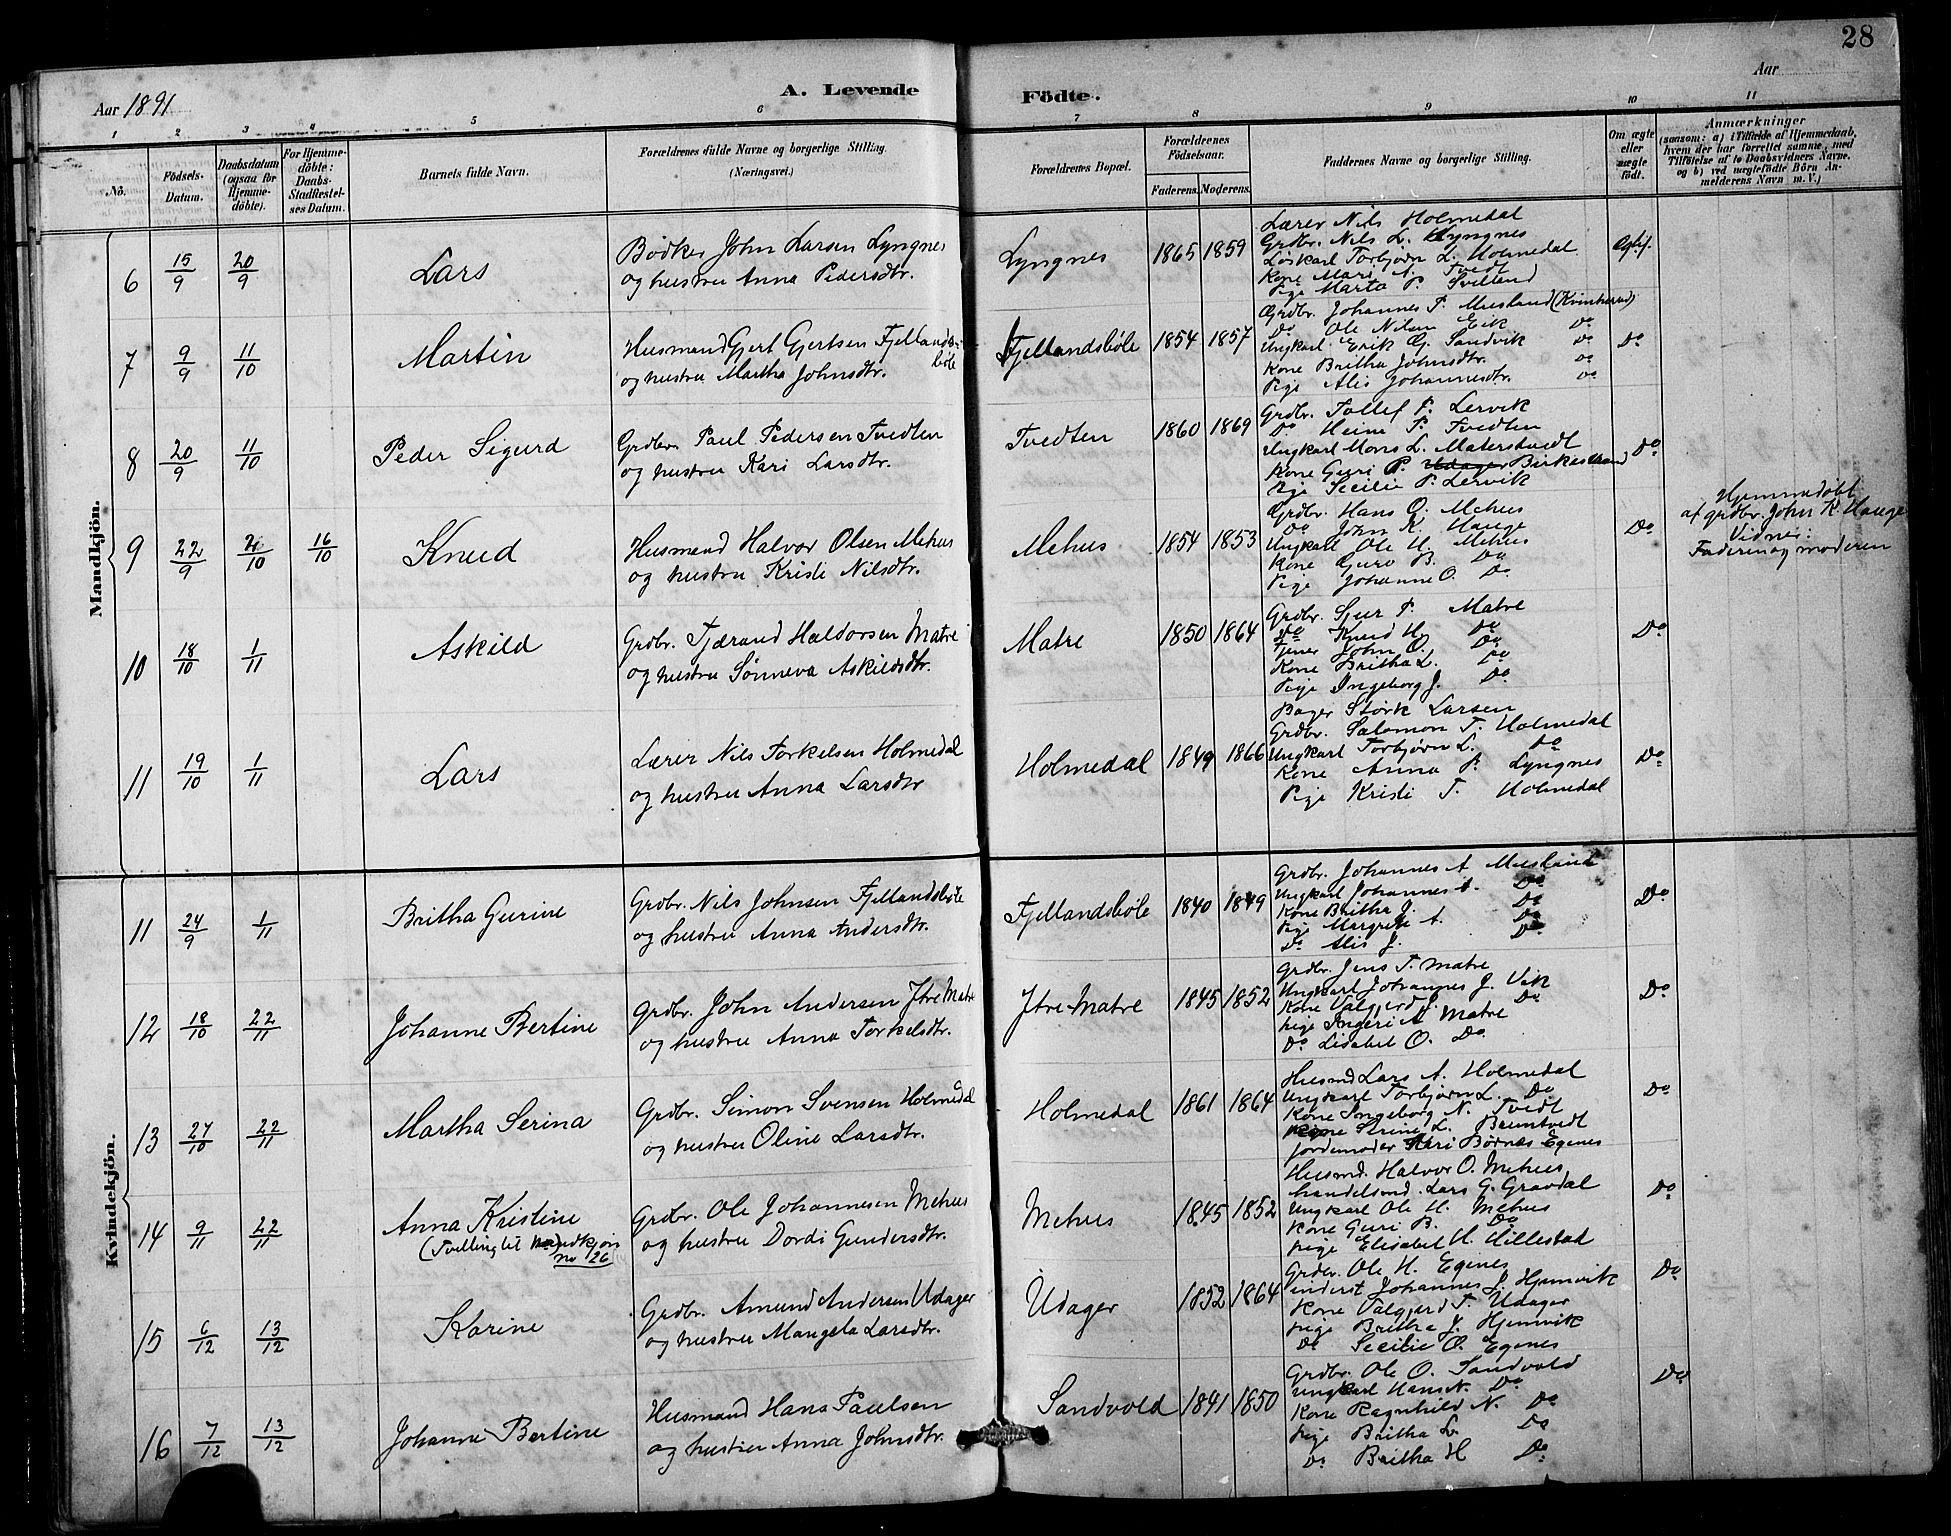 28
Aar 1891
A. Levende Födte.
Aar
1 2 3 4 5 6 7 8 9 10 11
No.
Födsels-Datum.
Daabsdatum (ogsaa for Hjemmedöbte).
For Hjemmedöbte: Daabs-Stadfæstelses Datum.
Barnets fulde Navn.
Forældrenes fulde Navne og borgerlige Stilling. (Næringsvei.)
Forældrenes Bopæl.
Forældrenes Födselsaar.
Faderens. Moderens.
Faddernes Navne og borgerlige Stilling.
Om ægte eller uægte födt.
Anmærkninger
(saasom: a) i Tilfælde af Hjemmedaab, hvem der har forrettet samme, med Tilföielse af to Daabsvidners Navne, og b) ved uægtefödte Börn Anmelderens Navn m. V.)
Mandkjön.
6 15/9 20/9 Lars
Bødker John Larsen Lyngnes
og hustru Anna Pedersdtr.
Lyngnes 1865 1859
Lærer Nils Holmedal
Grdbr. Nils L. Lyngnes
Løskarl Torbjørn L. Holmedal
Kone Mari A. Tvedt
Pige Marta P. Svelland
7 9/9 11/10 Martin
Husmand Gjert Gjertsen Fjellandsbøle
og hustru Martha Johnsdtr.
Fjellandsbøle 1854 1857
Grdbr. Johannes T. Musland (Kvinherad)
Do Ole Nilsen Eik Do
Ungkarl Erik G. Sandvik Do
Kone Britha Johnsdtr. Do
Pige Alis Johannesdtr. Do
Do
8 20/9 11/10 Peder Sigurd
Grdbr. Paul Pedersen Tvedten
og hustru Kari Larsdtr.
Tvedten 1860 1869
Grdbr. Tollef P. Lervik
Do Heine P. Tvedten
Ungkarl Mons L. Materstvedt
Kone Guri P. Udager Birkestrand
Pige Secilie P. Lervik
Do
9 22/9 2/10 16/10 Knud
Husmand Halvor Olsen Mehus
og hustru Kristi Nilsdtr.
Mehus 1854 1853
Grdbr. Hans O. Mehus
Do John K. Hauge
Ungkarl Ole H. Mehus
Kone Guro B. Do
Pige Johanne O. Do
Do
Hjemmedøbt
af grdbr. John K. Hauge
Vidner:
Faderen og moderen
10 18/10 1/11 Askild
Grdbr. Tjærand Haldorsen Matre
og hustru Sønneva Askildsdtr.
Matre 1850 1864
Grdbr. Sjur T. Matre
Do Knud H. Do
Tjener John O. Do
Kone Britha L. Do
Pige Ingeborg J. Do
Do
11 19/10 1/11 Lars
Lærer Nils Torkelsen Holmedal
og hustru Anna Larsdtr
Holmedal 1849 1866
Bager Størk Larsen
Grdbr. Salomon T. Holmedal
Ungkarl Torbjørn L. Do
Kone Anna P. Lyngnes
Pige Kristi T. Holmedal
Do
Kvindekjön.
11 24/9 1/11 Britha Gurine
Grdbr. Nils Johnsen Fjellandsbøle
og hustru Anna Andersdtr.
Fjellandsbøle 1840 1849
Grdbr. Johannes A Musland
Ungkarl Johannes A. Do
Kone Britha J. Do
Pige Margrete A. Do
Do Alis J. Do
Do
12 18/10 22/11 Johanne Bertine
Grdbr. John Andersen Ytre Matre
og hustru Anna Torkelsdtr.
Ytre Matre 1845 1852
Grdbr. Jens T. Matre
Ungkarl Johannes J. Vik
Kone Valgjerd J. Do
Pige Ingeri A Matre
Do Lisabet O. Do
Do
13 27/10 22/11 Martha Serina
Grdbr. Simon Svensen Holmedal
og hustru Oline Larsdtr.
Holmedal 1861 1864
Husmd Lars A. Holmedal
Ungkarl Torbjørn L. Do
Kone Ingeborg N. Tvedt
Kone Strine L. Bruntvedt
Jordemoder Kari Børnæs Egenes
Do
14 9/11 22/11 Anna Kristine
(Tvilling til Mandkjøn
no 26)
Grdbr. Ole Johannesen Mehus
og hustru Dordi Gundersdtr.
Mehus 1845 1852
Husmd. Halvor O. Mehus
Handelsmd. Lars G. Gravdal
Ungkarl Ole H. Mehus
Kone Guri B. Do
Pige Elisabet H. Hillestad
Do
15 6/12 13/12 Karine
Grdbr. Amund Andersen Udager
og hustru Mangela Larsdtr.
Udager 1852 1864
Grdbr. Ole H. Egenes
inderst Johannes J. Hjemvik
Kone Valgjerd T. Udager
Pige Britha J. Hjemvik
Do Secilie O. Egenes
Do
16 7/12 13/12 Johanne Bertine
Husmand Hans Paulsen
og hustru Anna Johnsdtr.
Sandvold 1841 1850
Grdbr. Ole O. Sandvold
Ungkarl Hans N. Do
Kone Ragnhild N. Do
Pige Britha L. Do
Do Britha H Do
Do